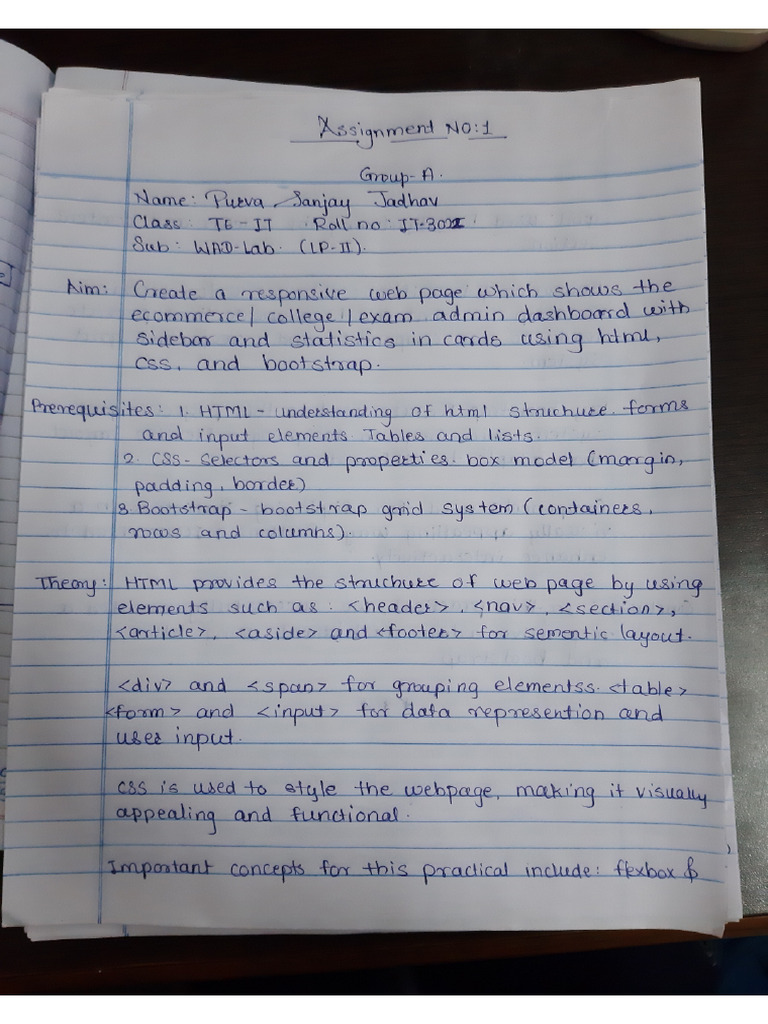 Assignment NO:1
Group-A.
Name: Purva Sanjay Jadhav
Class: TE-IT Roll no: IT-3022
Sub: WAD-Lab. (LP-II).
Aim: Create a responsive web page which shows the
ecommerce/college/exam admin dashboard with
sidebar and statistics in cards using html,
css, and bootstrap.
Prerequisites: 1. HTML - understanding of html structure. forms
and input elements. Tables and lists.
2. CSS- Selectors and properties. box model (margin,
padding, border)
3. Bootstrap - bootstrap grid system (containers,
rows and columns).
Theory: HTML provides the structure of web page by using
elements such as: <header>, <nav>, <section>,
<article>, <aside> and <footer> for sementic layout.
<div> and <span> for grouping elementss. <table>
<form> and <input> for data represention and
user input.
CSS is used to style the webpage, making it visually
appealing and functional.
Important concepts for this practical include: flexbox &